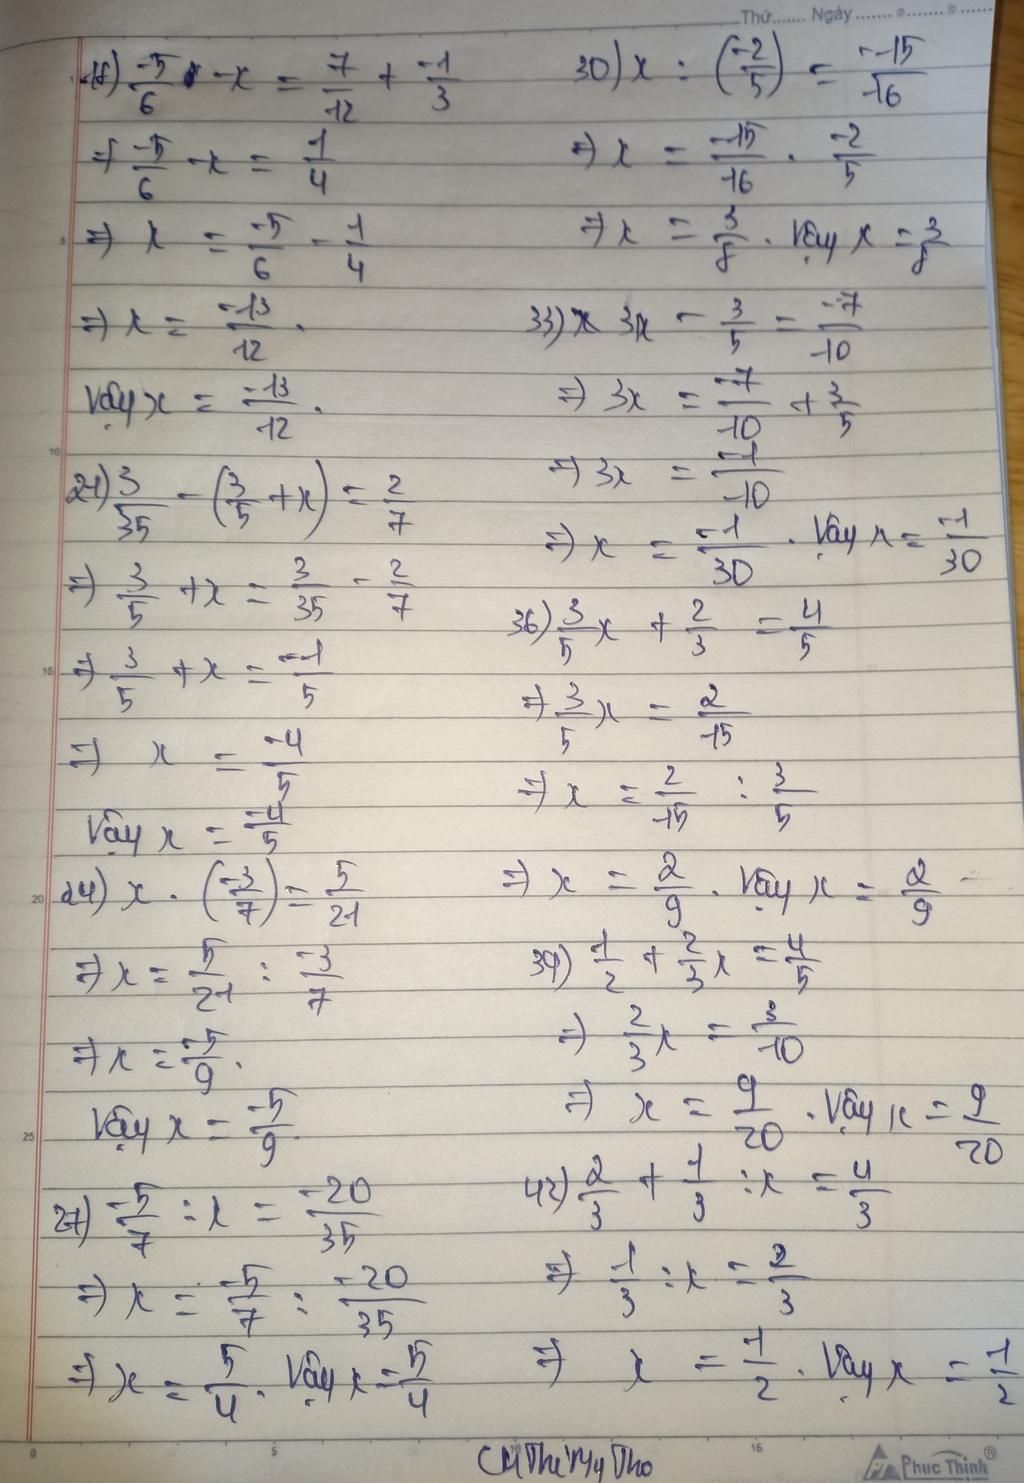 Thứ....... Ngày ....... ......
18) -5/6 - x = 7/12 + -1/3
=> -5/6 - x = 1/4
=> x = -5/6 - 1/4
=> x = -13/12.
Vậy x = -13/12.
21) 3/35 - (3/5 + x) = 2/7
=> 3/5 + x = 3/35 - 2/7
=> 3/5 + x = -1/5
=> x = -4/5
Vậy x = -4/5
24) x . (-3/7) = 5/21
=> x = 5/21 : -3/7
=> x = -5/9.
Vậy x = -5/9.
27) -5/7 : x = -20/35
=> x = -5/7 : -20/35
=> x = 5/4. Vậy x = 5/4
30) x : (-2/5) = -15/16
=> x = -15/16 . -2/5
=> x = 3/8. Vậy x = 3/8
33) 3x - 3/5 = -7/10
=> 3x = -7/10 + 3/5
=> 3x = -1/10
=> x = -1/30. Vậy x = -1/30
36) 3/5x + 2/3 = 4/5
=> 3/5x = 2/15
=> x = 2/15 : 3/5
=> x = 2/9. Vậy x = 2/9
39) 1/2 + 2/3x = 4/5
=> 2/3x = 3/10
=> x = 9/20. Vậy x = 9/20
42) 2/3 + 1/3 : x = 4/3
=> 1/3 : x = 2/3
=> x = 1/2. Vậy x = 1/2
Phuc Thinh®